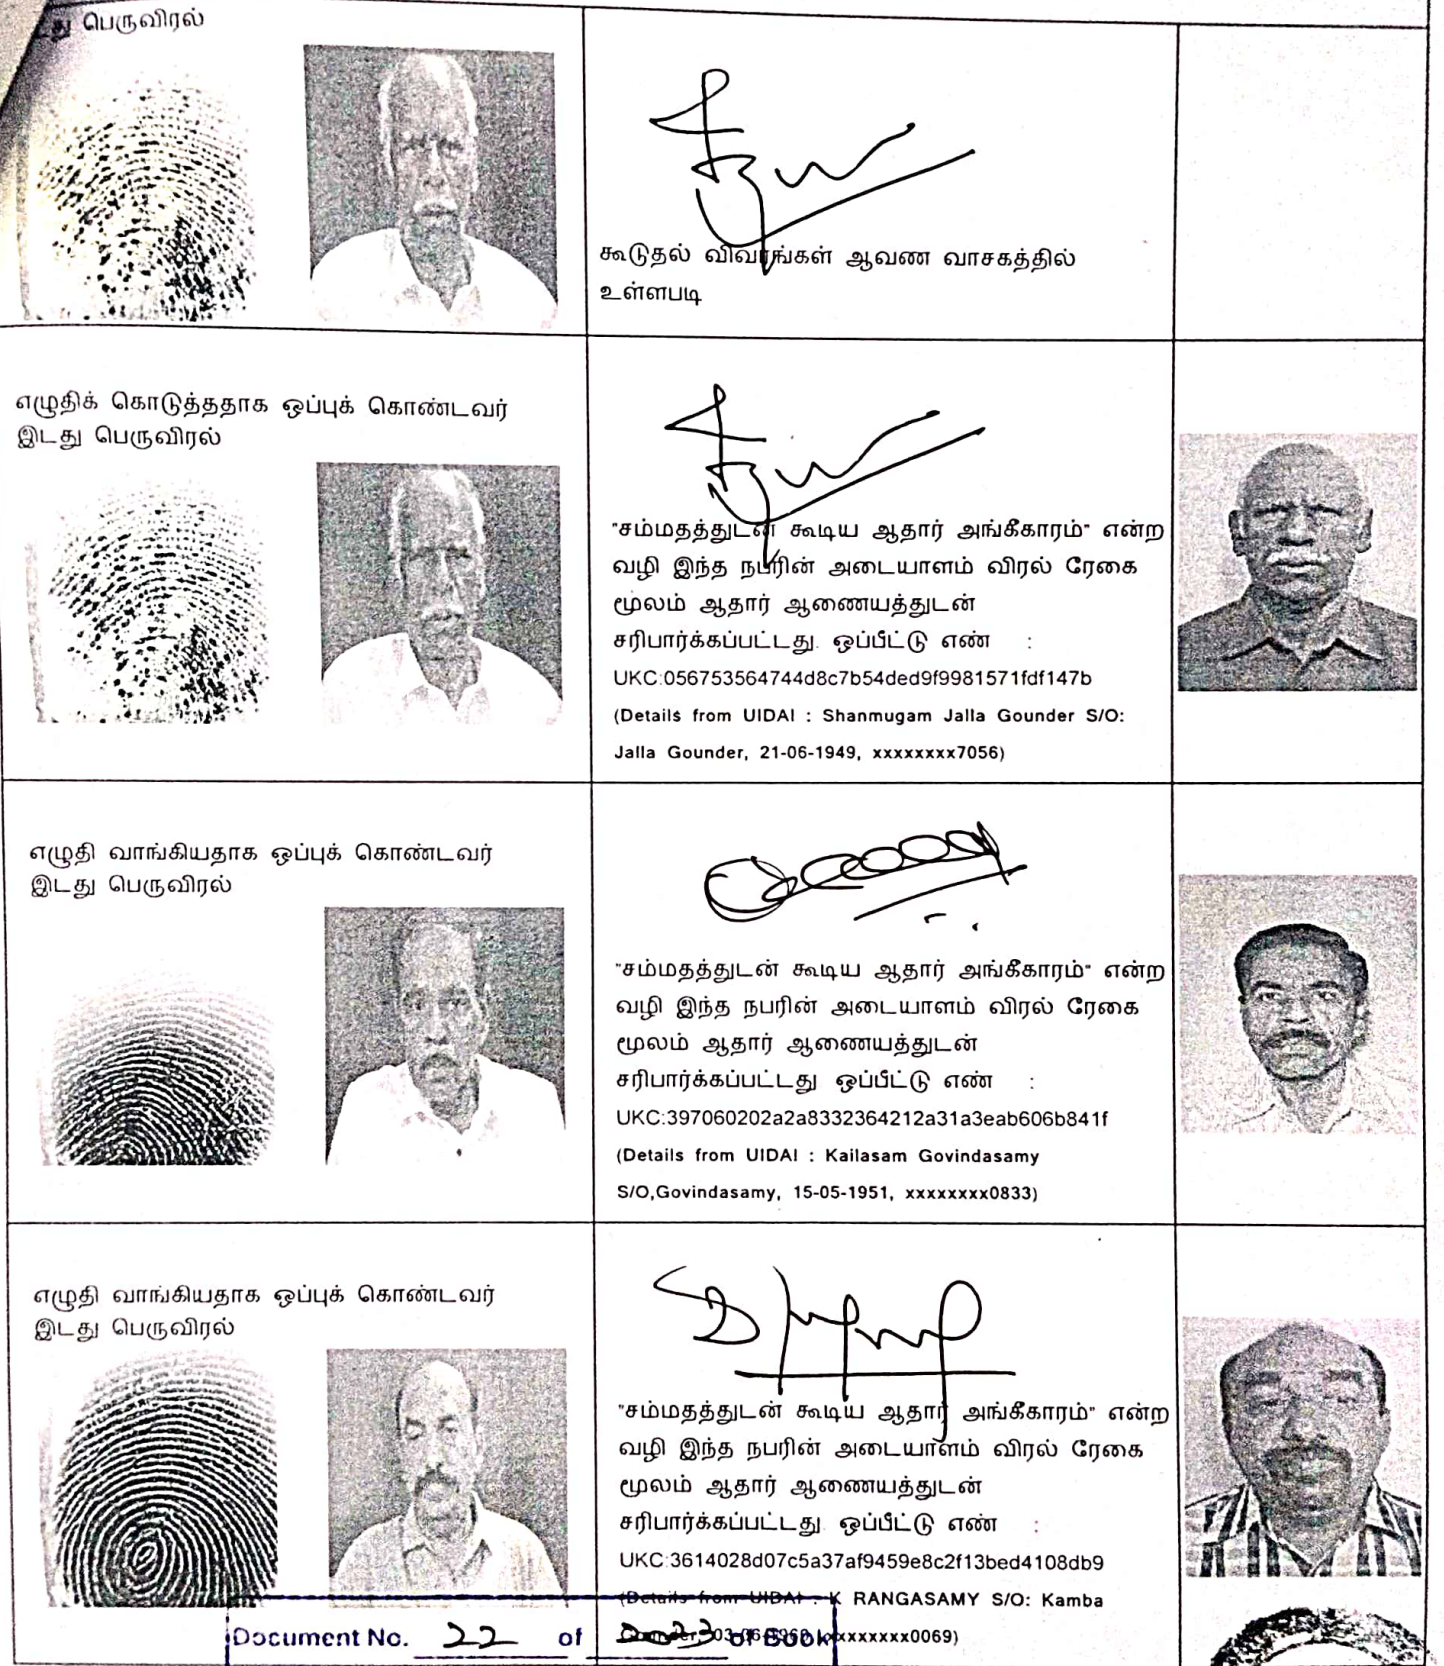 பெருவிரல்
கூடுதல் விவரங்கள் ஆவண வாசகத்தில்
உள்ளபடி
எழுதிக் கொடுத்ததாக ஒப்புக் கொண்டவர்
இடது பெருவிரல்
"சம்மதத்துடன் கூடிய ஆதார் அங்கீகாரம்" என்ற
வழி இந்த நபரின் அடையாளம் விரல் ரேகை
மூலம் ஆதார் ஆணையத்துடன்
சரிபார்க்கப்பட்டது. ஒப்பீட்டு எண் :
UKC:056753564744d8c7b54ded9f9981571fdf147b
(Details from UIDAI : Shanmugam Jalla Gounder S/O:
Jalla Gounder, 21-06-1949, xxxxxxxx7056)
எழுதி வாங்கியதாக ஒப்புக் கொண்டவர்
இடது பெருவிரல்
"சம்மதத்துடன் கூடிய ஆதார் அங்கீகாரம்" என்ற
வழி இந்த நபரின் அடையாளம் விரல் ரேகை
மூலம் ஆதார் ஆணையத்துடன்
சரிபார்க்கப்பட்டது ஒப்பீட்டு எண் :
UKC:397060202a2a8332364212a31a3eab606b841f
(Details from UIDAI : Kailasam Govindasamy
S/O,Govindasamy, 15-05-1951, xxxxxxxx0833)
எழுதி வாங்கியதாக ஒப்புக் கொண்டவர்
இடது பெருவிரல்
"சம்மதத்துடன் கூடிய ஆதார் அங்கீகாரம்" என்ற
வழி இந்த நபரின் அடையாளம் விரல் ரேகை
மூலம் ஆதார் ஆணையத்துடன்
சரிபார்க்கப்பட்டது. ஒப்பீட்டு எண் :
UKC:3614028d07c5a37af9459e8c2f13bed4108db9
(Details from UIDAI : K RANGASAMY S/O: Kamba
xxxxxxxx0069)
Document No. 22 of 2023 of Book